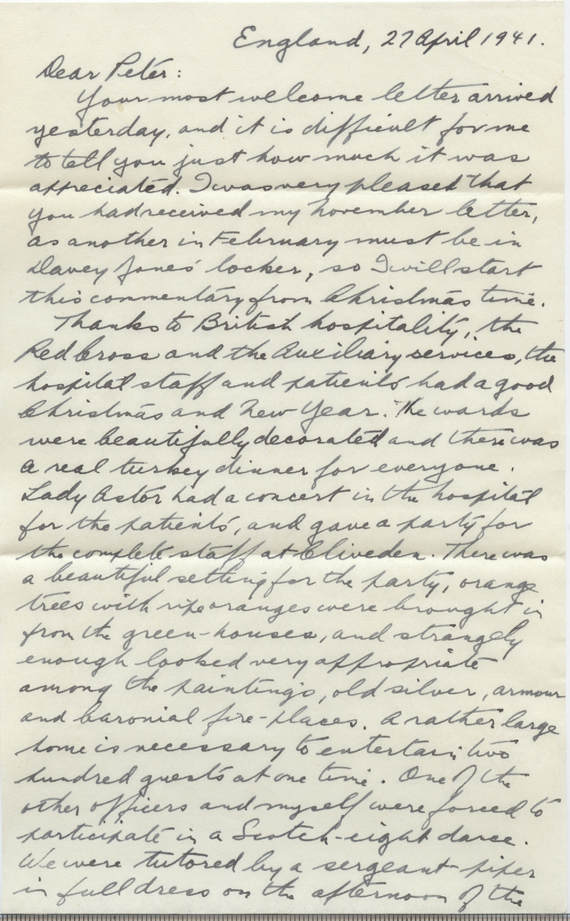 England, 27 April 1941.
Dear Peter:
Your most welcome letter arrived
yesterday, and it is difficult for me
to tell you just how much it was
appreciated. I was very pleased that
you had received my November letter,
as another in February must be in
Davey Jones' locker, so I will start
this commentary from Christmas time.
Thanks to British hospitality, the
Red Cross and the Auxiliary services, the
hospital staff and patients had a good
Christmas and New Year. The wards
were beautifully decorated and there was
a real turkey dinner for everyone.
Lady Astor had a concert in the hospital
for the patients, and gave a party for
the complete staff at Cliveden. There was
a beautiful setting for the party, orange
trees with ripe oranges were brought in
from the green-houses, and strangely
enough looked very appropriate
among the paintings, old silver, armour
and baronial fire-places. A rather large
home is necessary to entertain two
hundred guests at one time. One of the
other officers and myself were forced to
participate in a Scotch-eight dance.
We were tutored by a sergeant-piper
in full dress on the afternoon of the